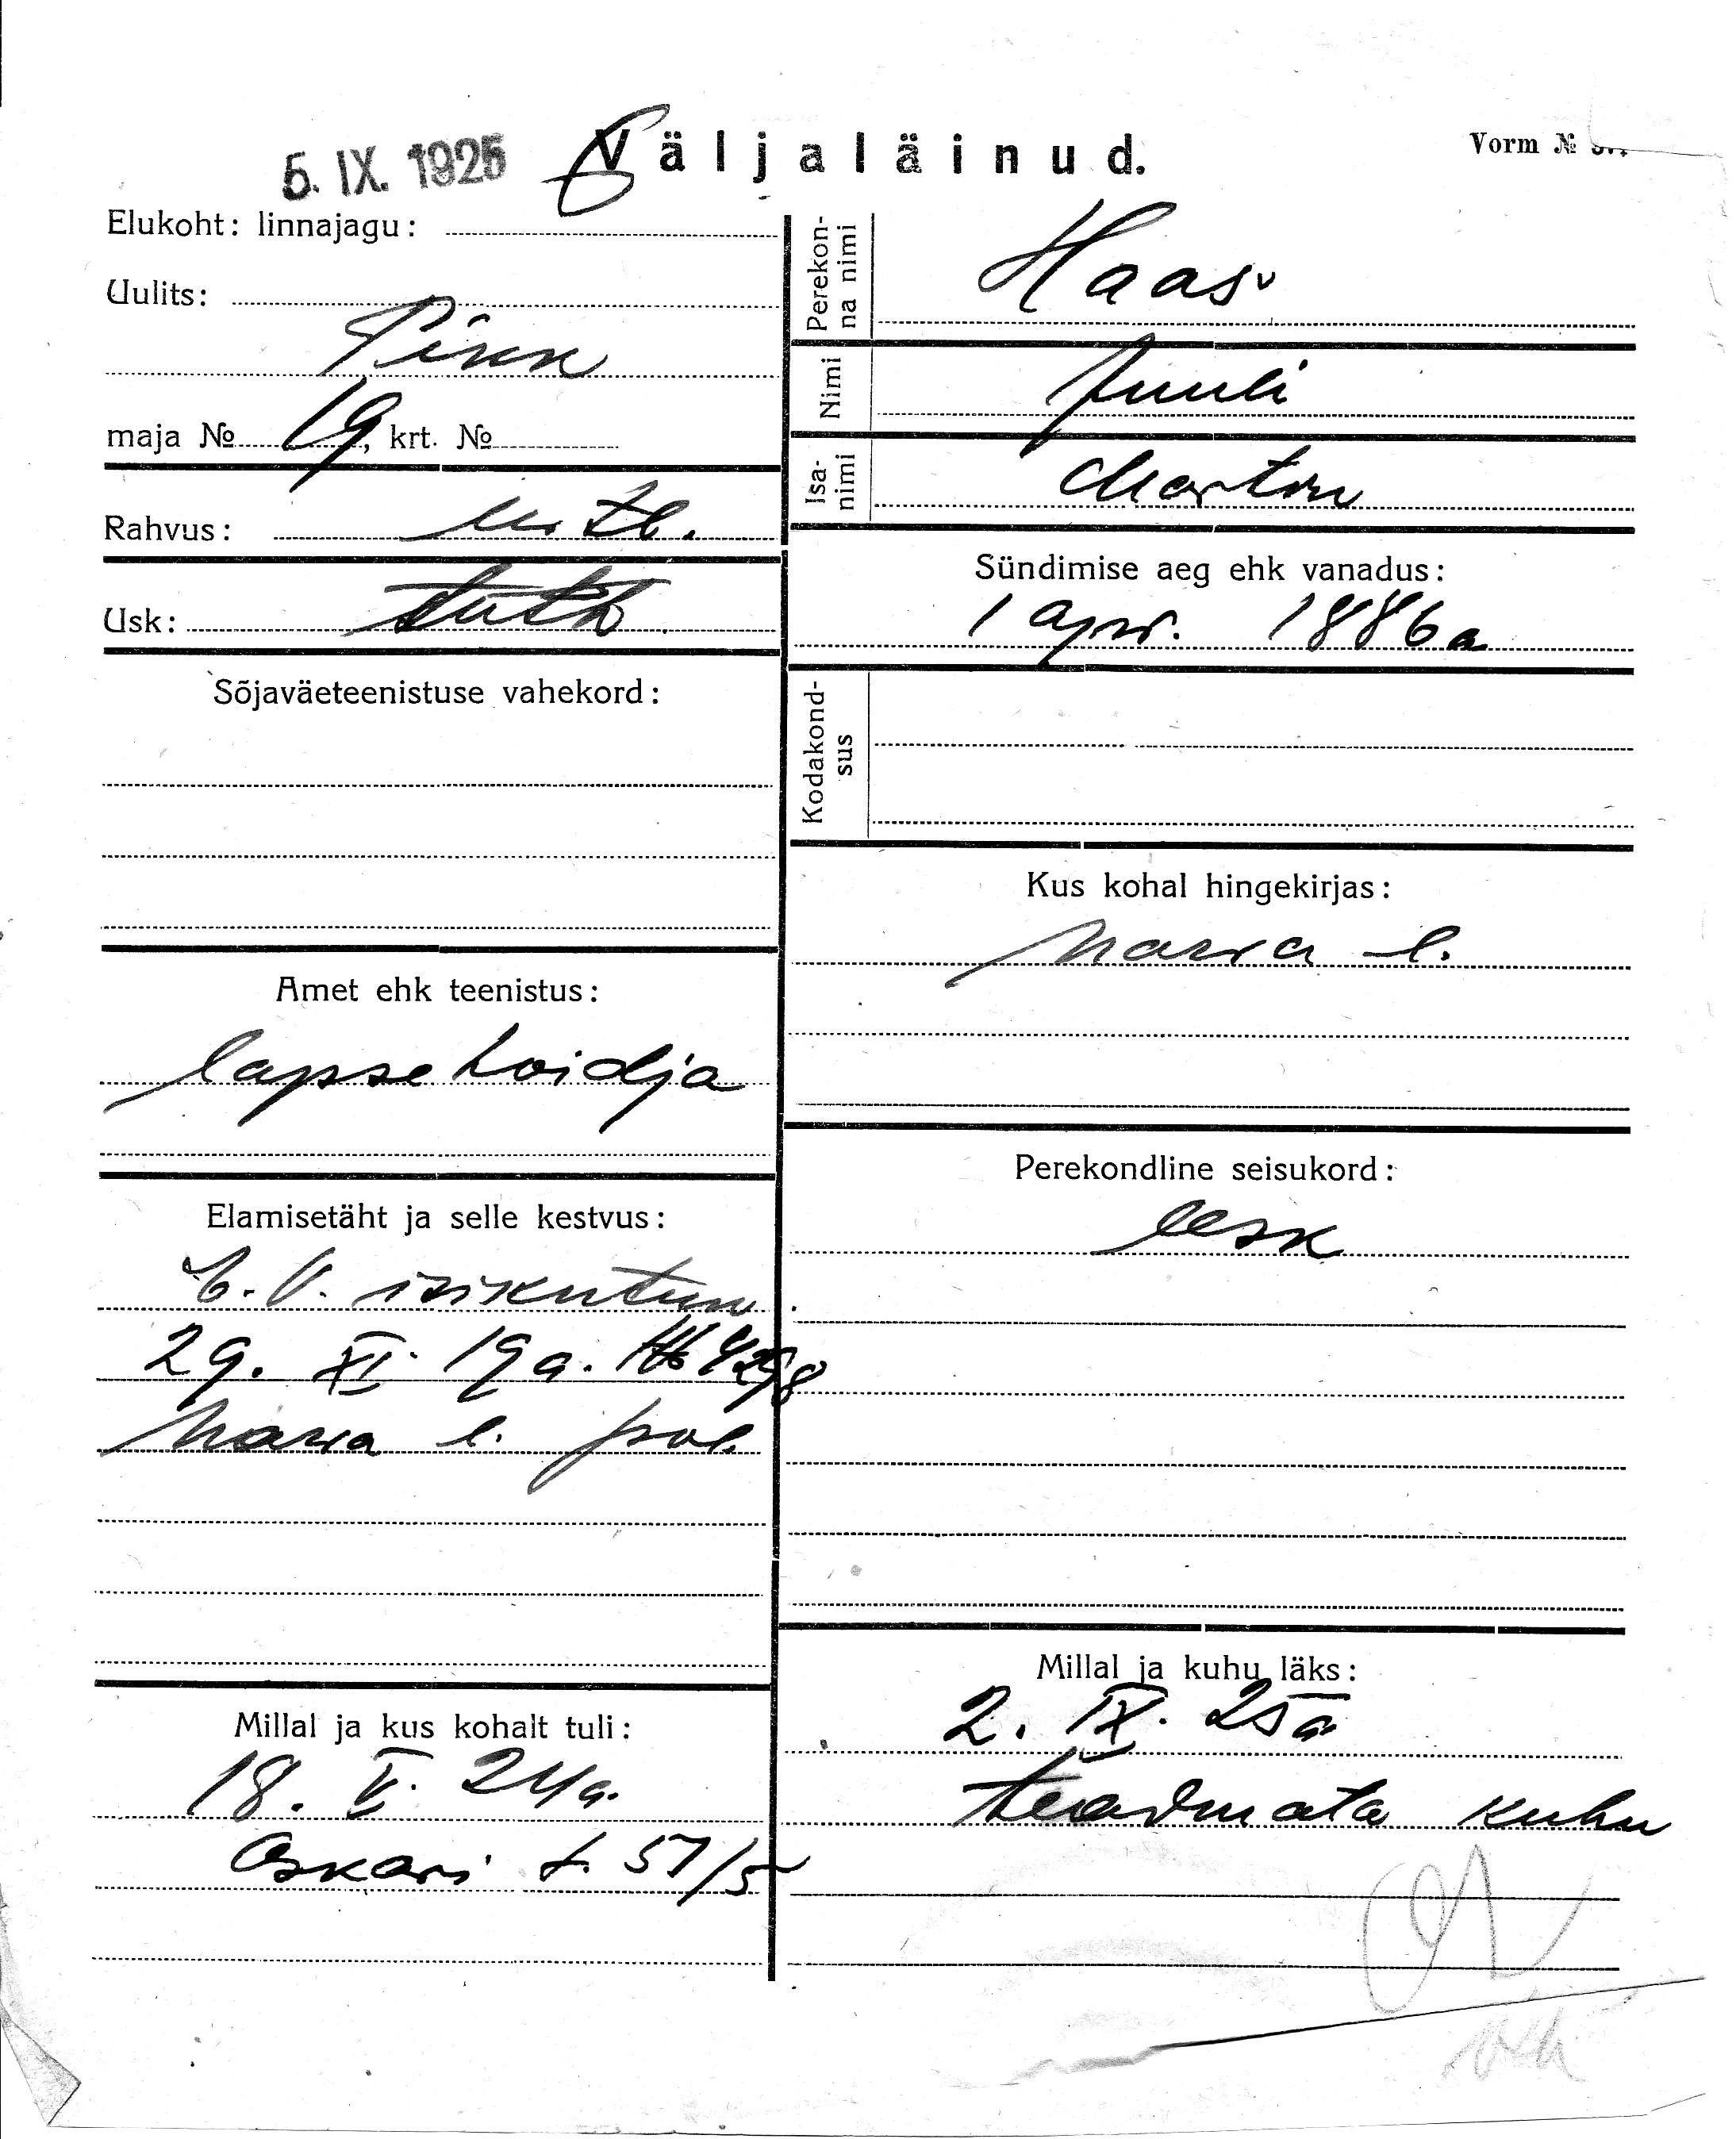 5. IX. 1925
Väljaläinud.
Vorm №
Elukoht: linnajagu:
Uulits:
Pikk
maja № 19, krt. №
Rahvus:
Usk: luth
Sõjaväeteenistuse vahekord:
Amet ehk teenistus:
lapsehoidja
Elamisetäht ja selle kestvus:
E. V. isikutun
29. XI. 19 a. № 4298
Narva l. pol.
Millal ja kus kohalt tuli:
18. V. 24 a.
Oskari t. 57/5
Perekonna nimi
Haas
Nimi
Juuli
Isanimi
Martin
Sündimise aeg ehk vanadus:
1 apr. 1886 a
Kodakondsus
Kus kohal hingekirjas:
Narva l.
Perekondline seisukord:
lesk
Millal ja kuhu läks:
2. IX. 25 a
teadmata kuhu